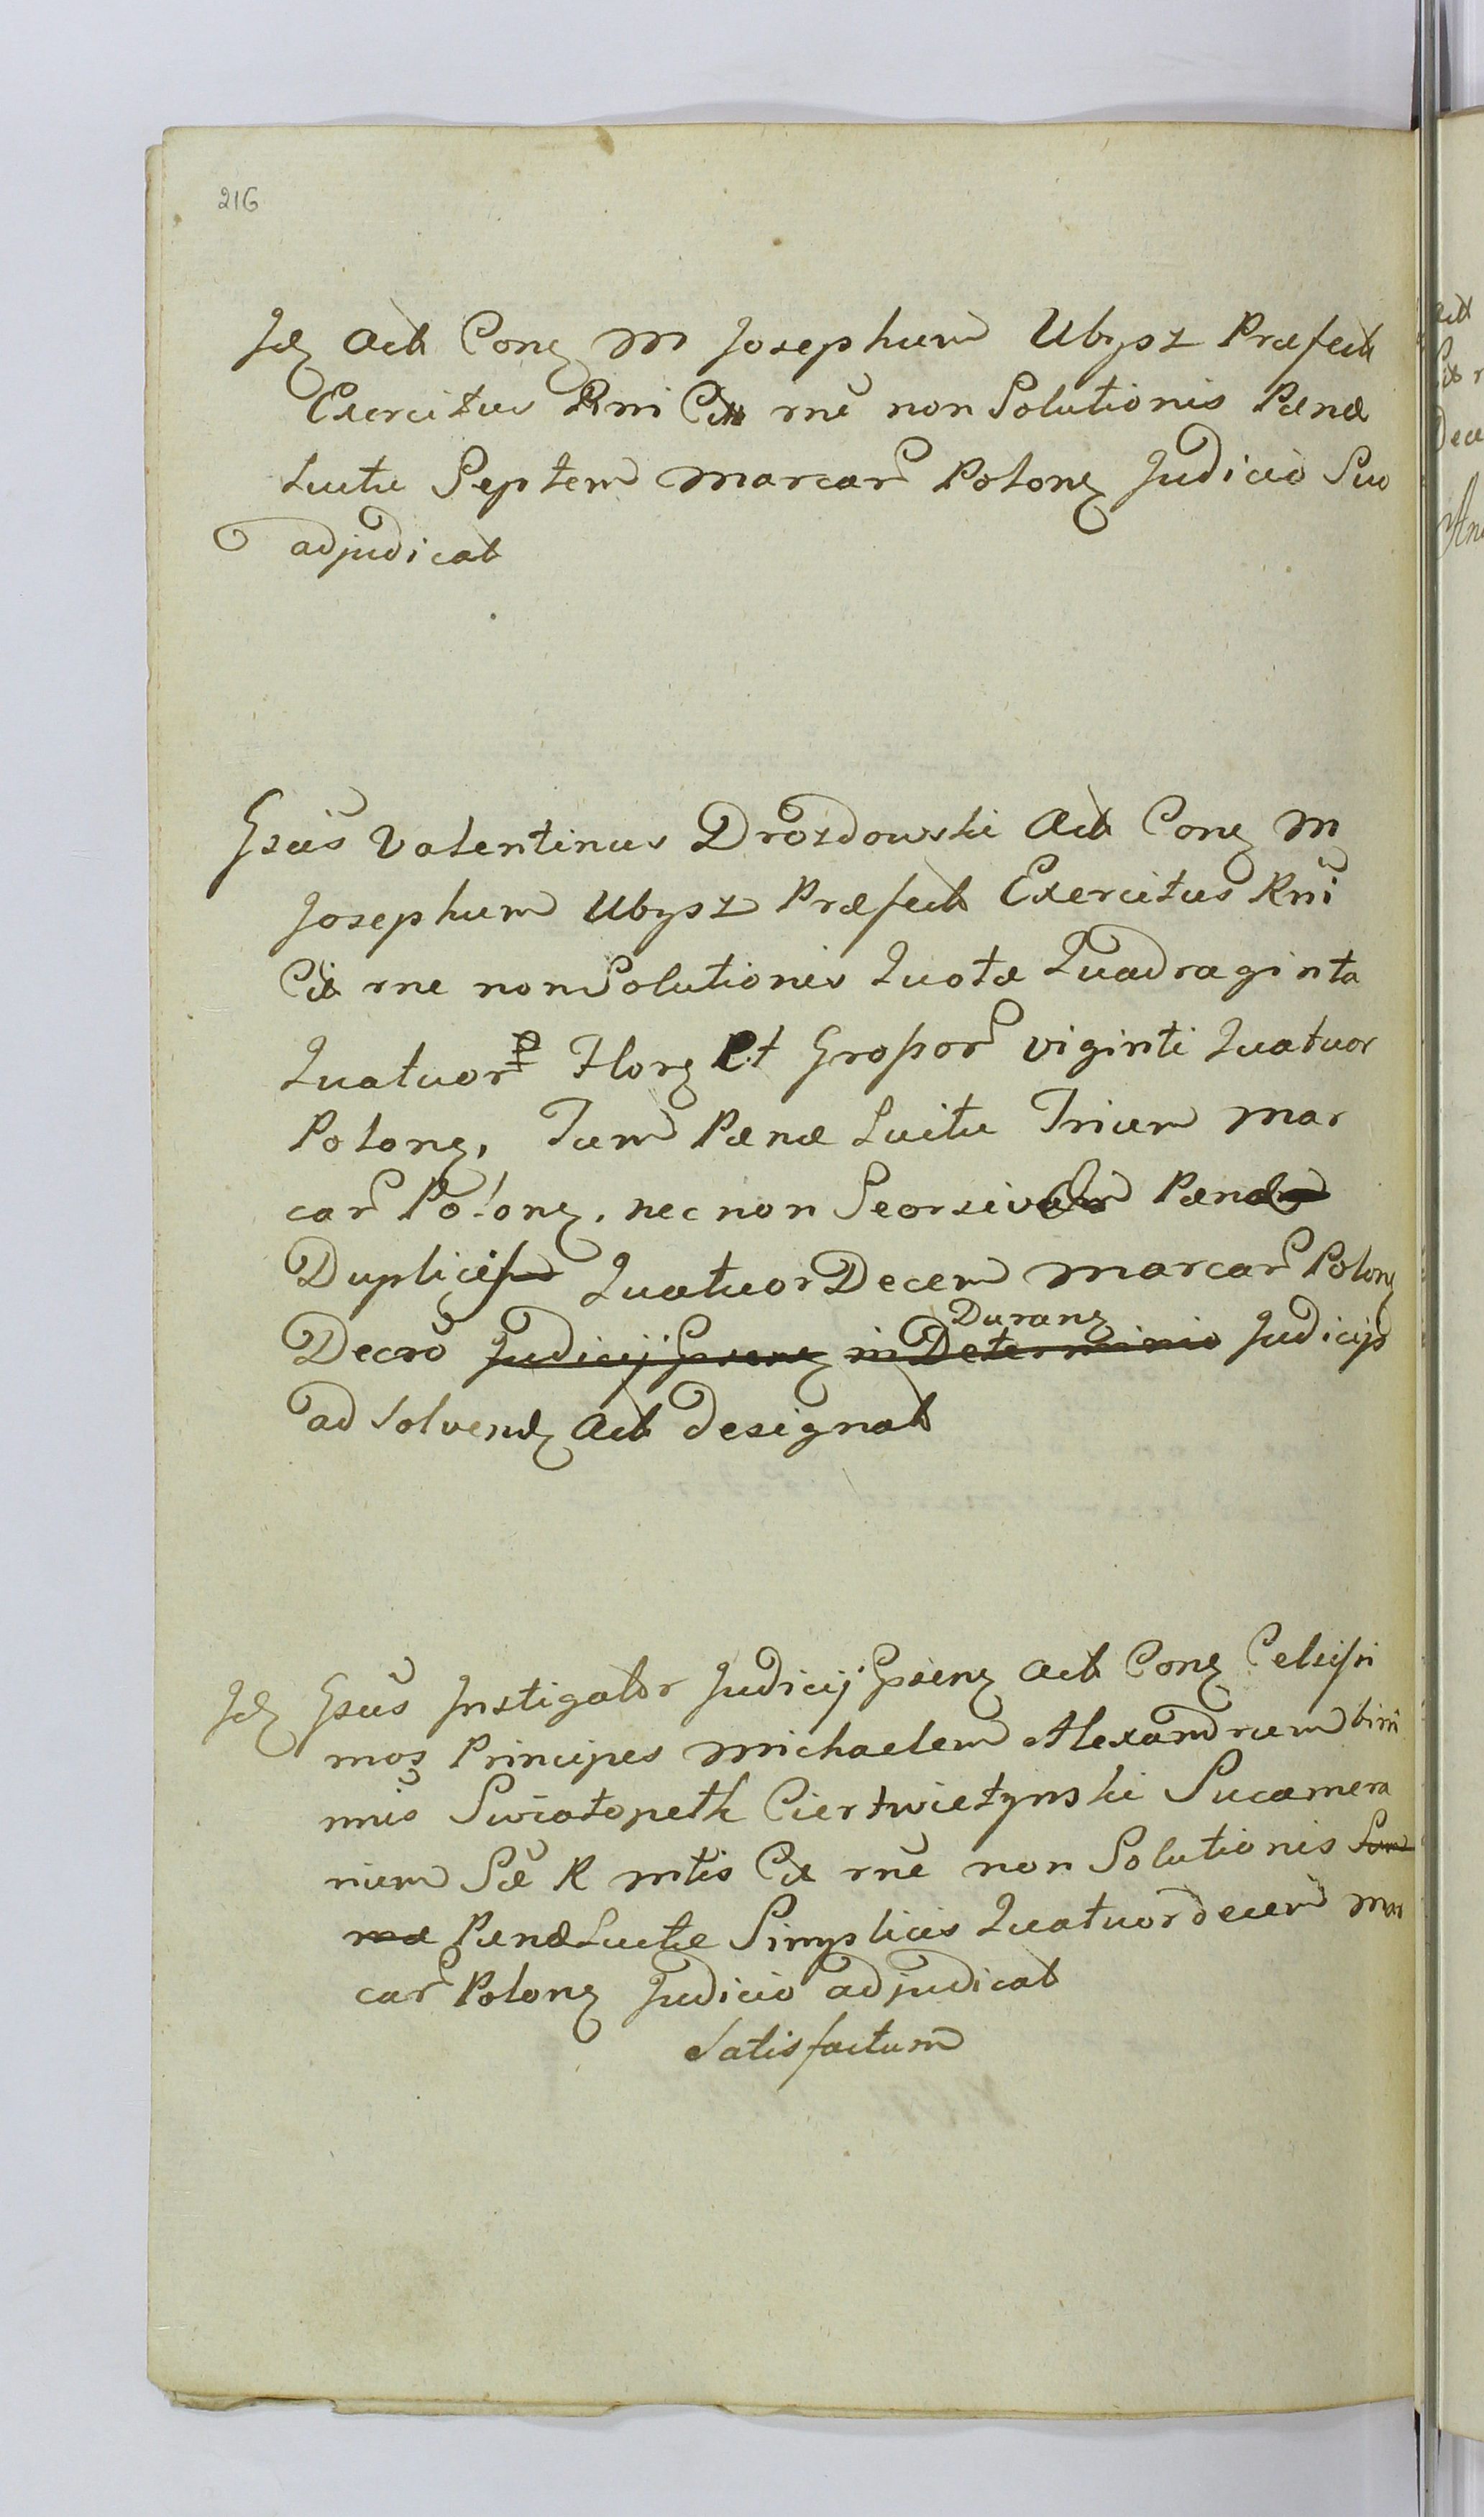 216
Jdz Act Conz M Josephum Ubysz Præfect
Exercitus Rni Cit rnē non Solutionis Pænæ
Luctu Septem marcar Polonz Judicio Suo
adjudicat
Gsūs Valentinus Drozdowski Act Conz M
Josephum Ubysz Præfect Exercitus Rni
Cit rne non Solutionis Quotæ Quadraginta
Quatuor Florz Et Grossor viginti Quatuor
Polonz, Tum Pænæ Luitu Trium mar
car Polonz, nec non Seorsive Pænæ
Duplicis Quatuor Decem marcar Polonz
Duranz
Decro Judicij Gsienz in Determinio Judicijs
ad solvendz Act designat
Jdz Gsūs Instigator Judicij Gsienz Act Conz Celsissi
mos Principes Michaelem Alexandrum bini
mnis Swiatopełk Czertwietynski Sucamera
rium Sæ R mtis Cit rnē non Solutionis Sum
mæ Pænæ Luctu Simplicis Quatuordecem mar
car Polonz Judicio adjudicat
Satisfactum